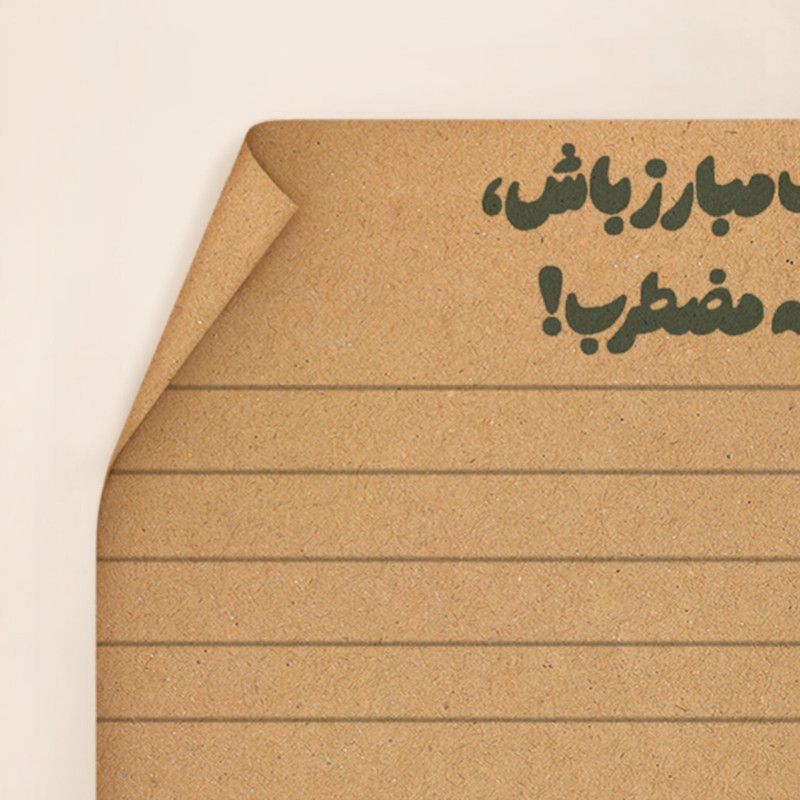 مبارز باش،
مضطرب!